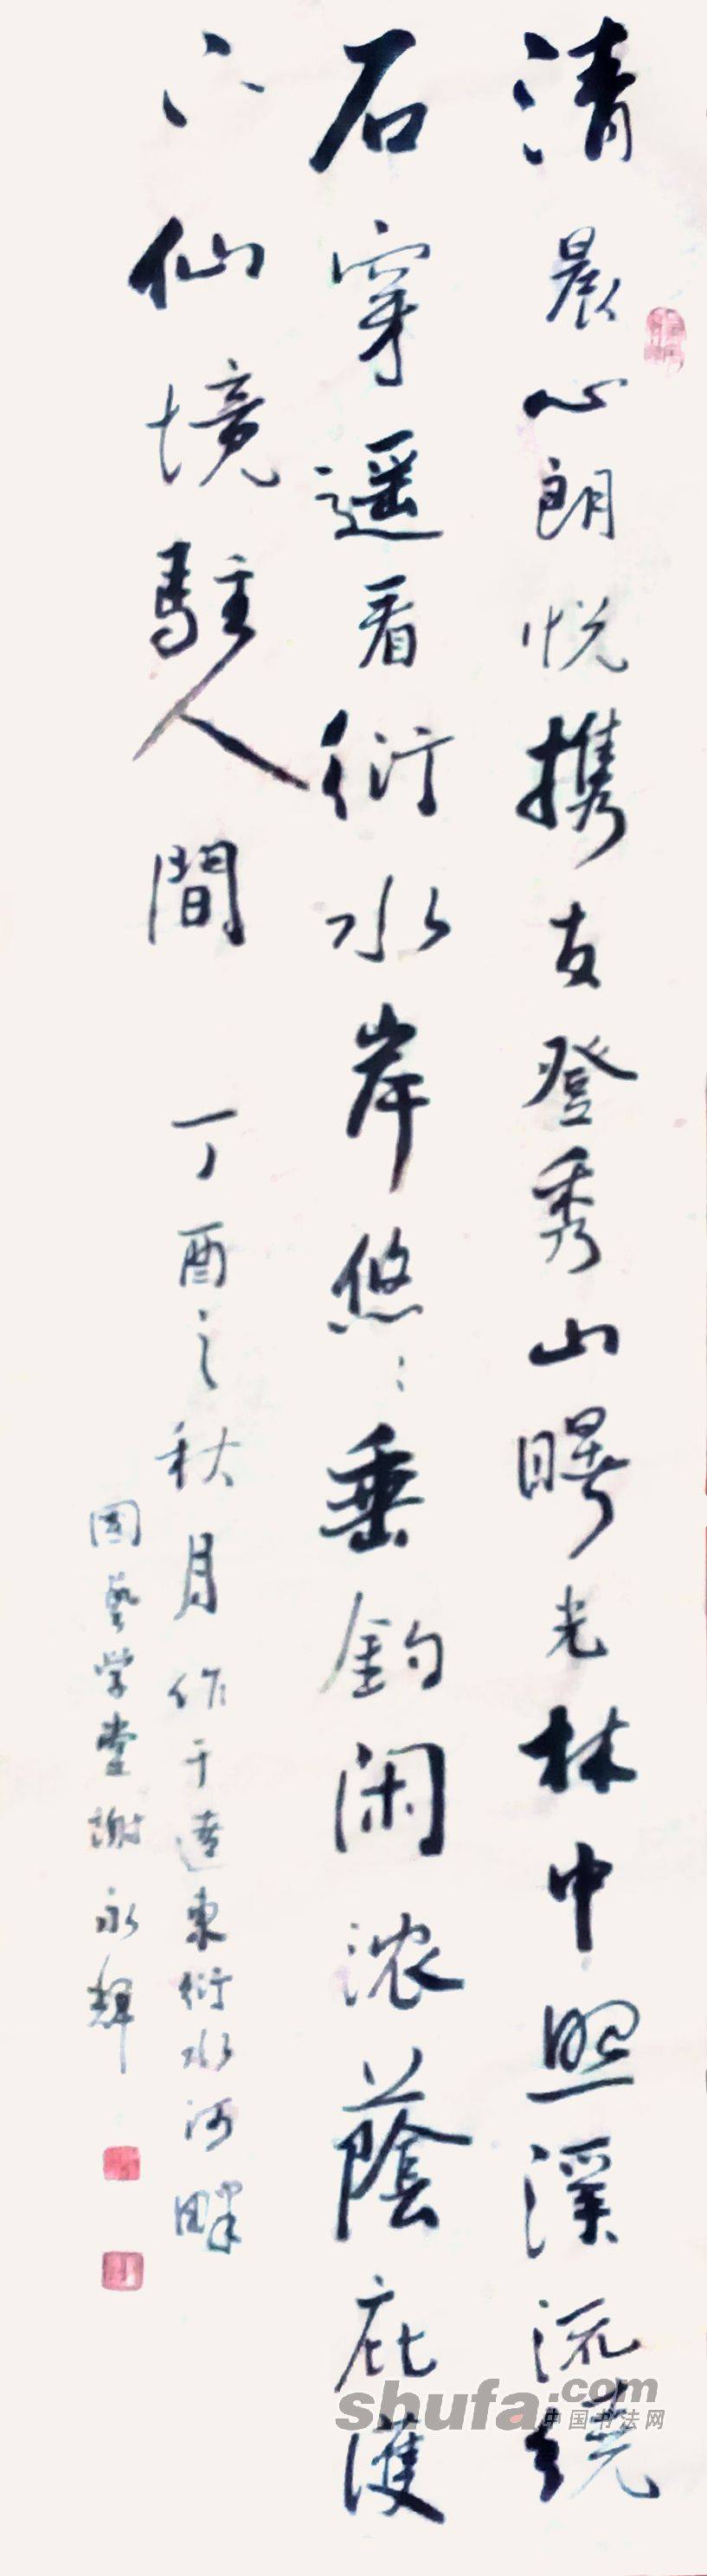 清晨心朗悦携友登秀山曙光林中照溪流绕
石穿遥看衍水岸悠〻垂钓闲浓蔭庇護
下仙境駐人間 丁酉之秋月作于遼東衍水河畔
国藝学堂謝永輝
shufa.com
中国书法网